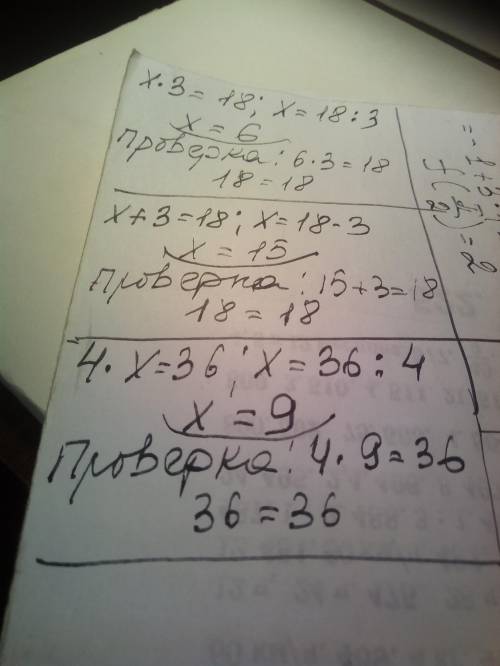 x·3=18; x=18:3
x=6
Проверка: 6·3=18
18=18
x+3=18; x=18-3
x=15
Проверка: 15+3=18
18=18
4·x=36; x=36:4
x=9
Проверка: 4·9=36
36=36